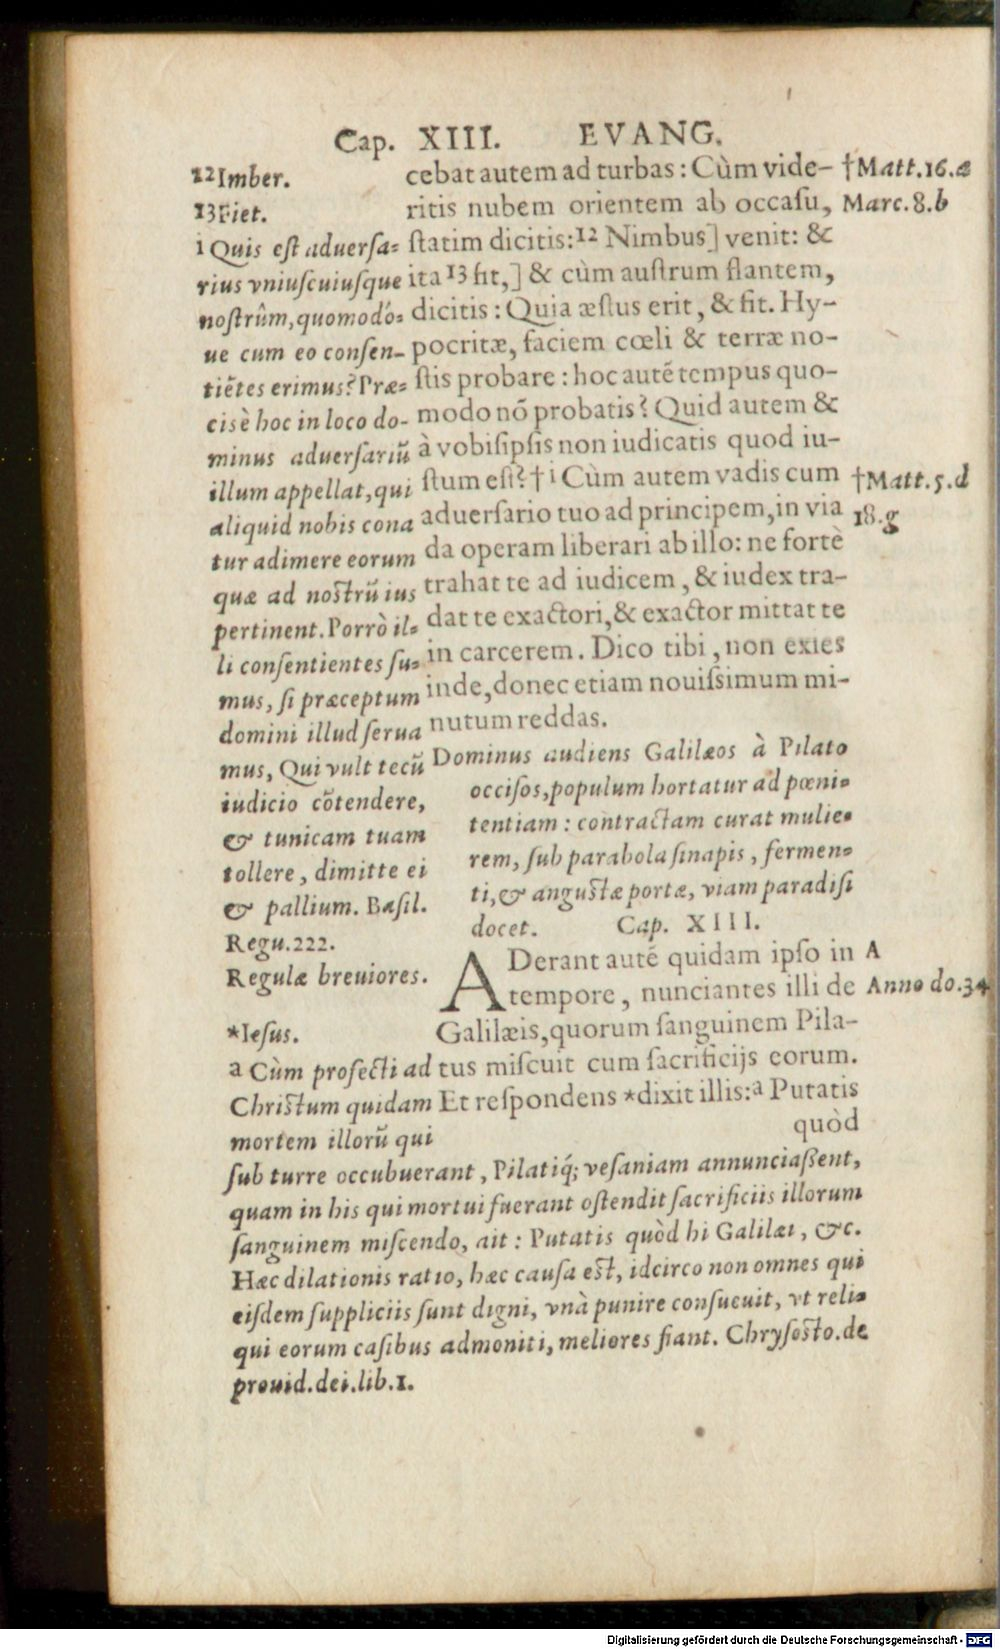 Cap. XIII. EVANG.
12 Imber.
13 Fiet.
i Quis eſt aduerſa-
rius vniuſcuiuſque
noſtrûm, quomodó-
ue cum eo conſen-
tiẽtes erimus? Præ-
cisè hoc in loco do-
minus aduerſariũ
illum appellat, qui
aliquid nobis cona
tur adimere eorum
quæ ad noſtrũ ius
pertinent. Porrò il-
li conſentientes ſu-
mus, ſi præceptum
domini illud ſerua
mus, Qui vult tecũ
iudicio cõtendere,
& tunicam tuam
tollere, dimitte ei
& pallium. Baſil.
Regu. 222.
Regulæ breuiores.
*Ieſus.
a Cùm profecti ad
Chriſtum quidam
mortem illorũ qui
cebat autem ad turbas: Cùm vide-
ritis nubem orientem ab occaſu,
ſtatim dicitis: 12 Nimbus] venit: &
ita 13 fit,] & cùm auſtrum flantem,
dicitis: Quia æſtus erit, & fit. Hy-
pocritæ, faciem cœli & terræ no-
ſtis probare: hoc autẽ tempus quo-
modo nõ probatis? Quid autem &
à vobiſipſis non iudicatis quod iu-
ſtum eſt? † i Cùm autem vadis cum
aduerſario tuo ad principem, in via
da operam liberari ab illo: ne fortè
trahat te ad iudicem, & iudex tra-
dat te exactori, & exactor mittat te
in carcerem. Dico tibi, non exies
inde, donec etiam nouiſsimum mi-
nutum reddas.
Dominus audiens Galilæos à Pilato
occiſos, populum hortatur ad pœni-
tentiam: contractam curat mulie-
rem, ſub parabola ſinapis, fermen-
ti, & anguſtæ portæ, viam paradiſi
docet. Cap. XIII.
ADerant autẽ quidam ipſo in
tempore, nunciantes illi de
Galilæis, quorum ſanguinem Pila-
tus miſcuit cum ſacrificijs eorum.
Et reſpondens *dixit illis: a Putatis
quòd
†Matt. 16. a
Marc. 8. b
†Matt. 5. d
18. g
A
Anno do. 34
ſub turre occubuerant, Pilatiq́; veſaniam annunciaßent,
quam in his qui mortui fuerant oſtendit ſacrificiis illorum
ſanguinem miſcendo, ait: Putatis quòd hi Galilæi, &c.
Hæc dilationis ratio, hæc cauſa eſt, idcirco non omnes qui
eiſdem ſuppliciis ſunt digni, vnà punire conſueuit, vt reli-
qui eorum caſibus admoniti, meliores fiant. Chryſoſto. de
prouid. dei. lib. 1.
Digitalisierung gefördert durch die Deutsche Forschungsgemeinschaft - DFG